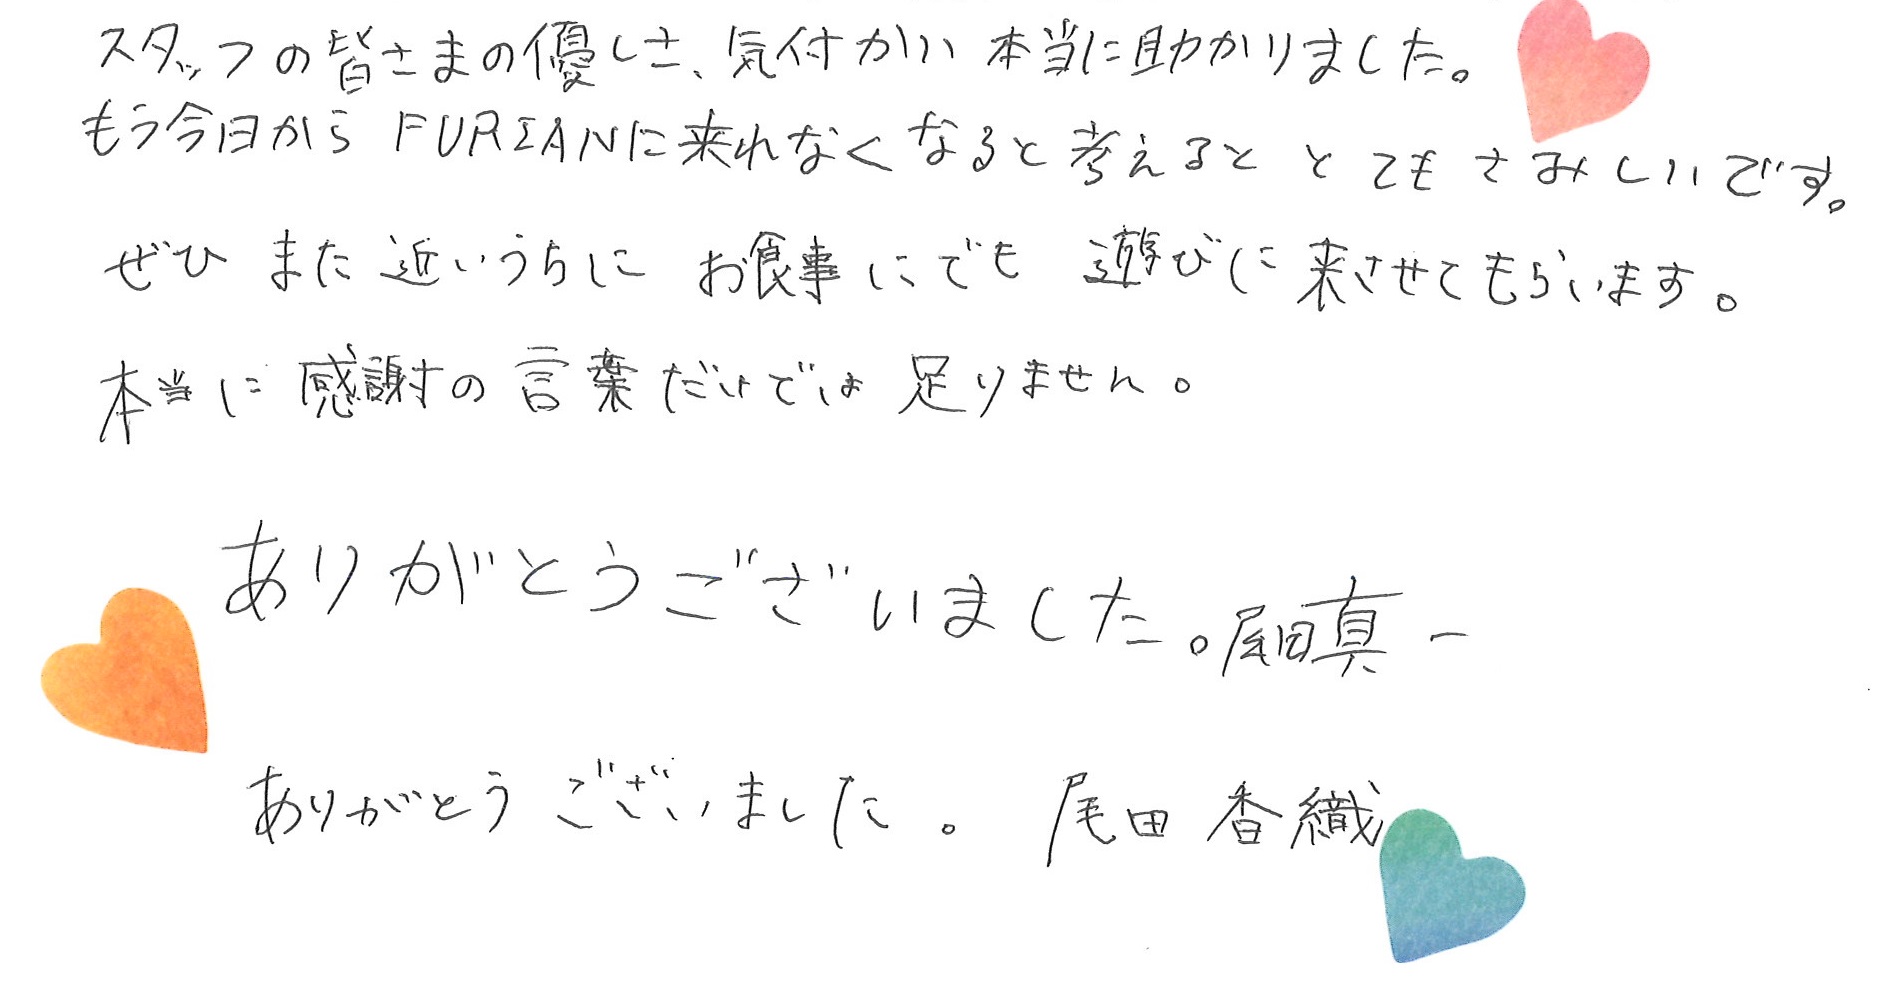 スタッフの皆さまの優しさ、気付かい 本当に助かりました。
もう今日から FURIANに来れなくなると考えると とてもさみしいです。
ぜひ また近いうちに お食事にでも 遊びに来させてもらいます。
本当に感謝の言葉だけでは足りません。
ありがとうございました。尾田真一
ありがとうございました。 尾田 香織